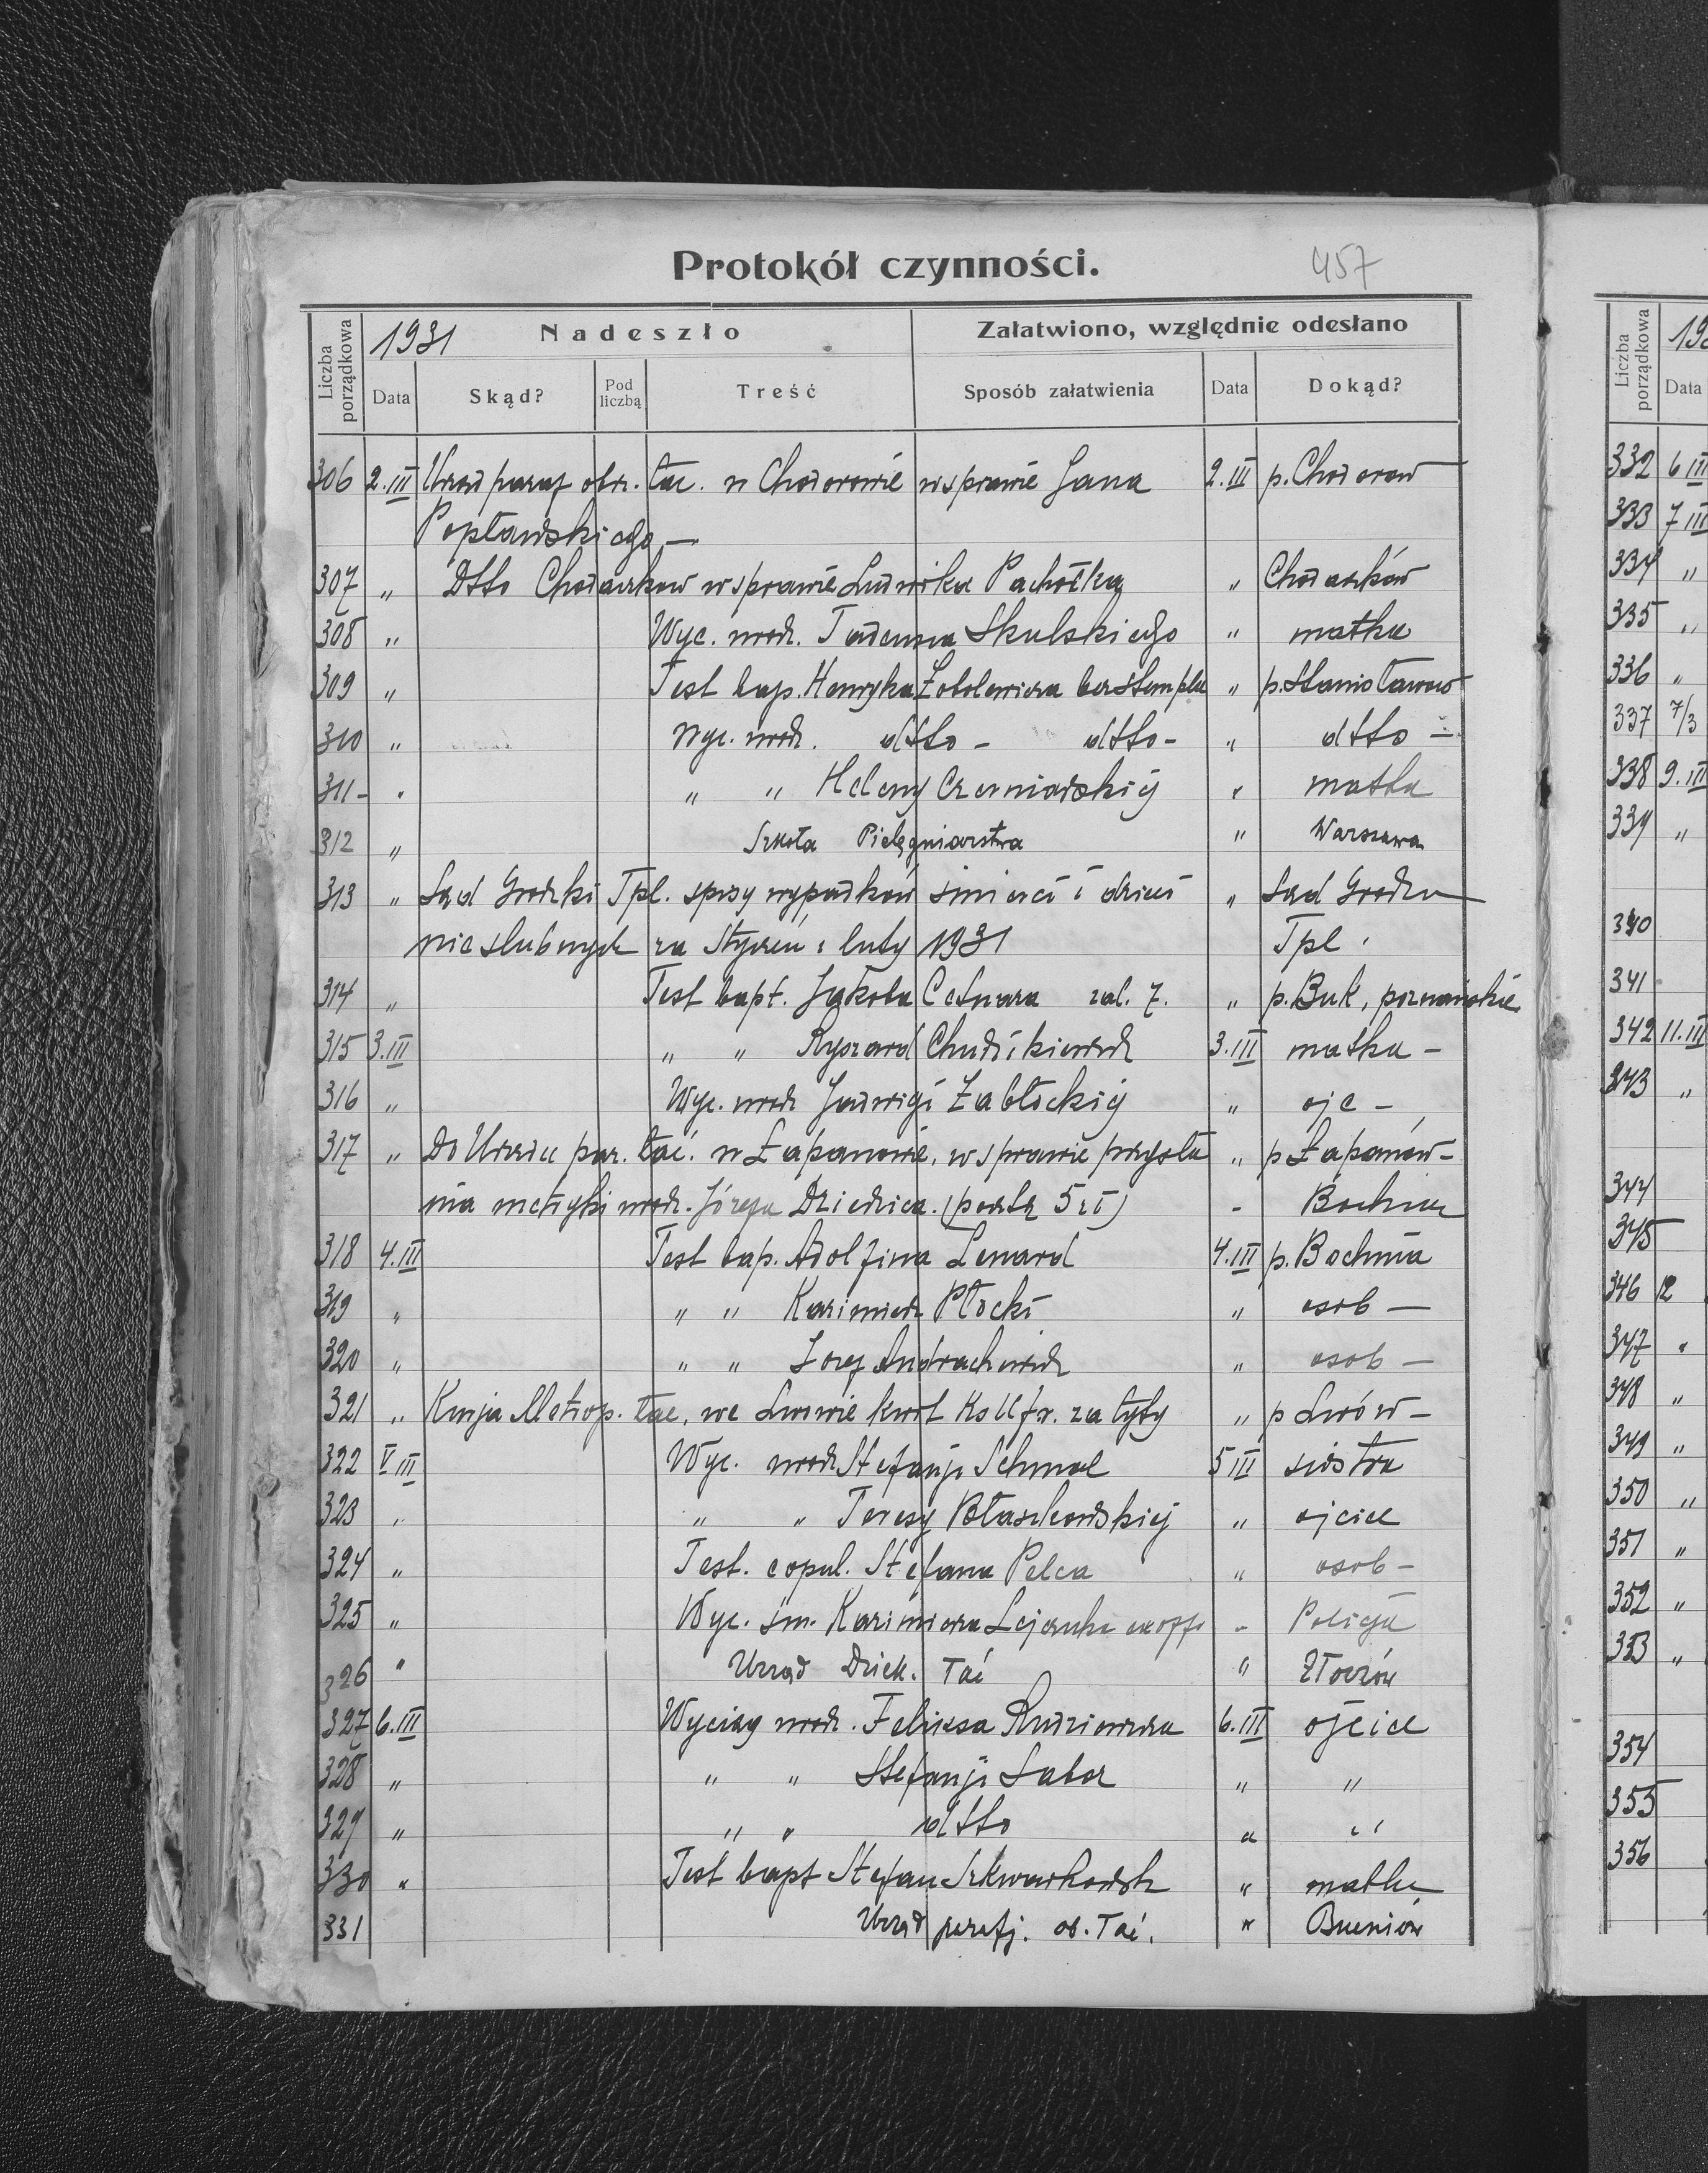 Protokół czynności.
457
Liczba porządkowa
1931 Nadeszło
Załatwiono, względnie odesłano
Data Skąd? Pod liczbą Treść Sposób załatwienia Data Dokąd?
306 2.III Urząd paraf obrz. łac. w Chodorowie w sprawie Jana 2.III p. Chodorow
Popławskiego —
307 „ Dtto Chodaczkow w sprawie Ludwika Pachołka „ Chodaczków
308 „ Wyc. urodz. Tadeusza Skulskiego „ matka
309 „ Test bap. Henryka bez stempla „ p. Stanisławow
310 „ Wyc. urodz. dtto - dtto - „ dtto -
311 - „ „ „ Heleny Czerniawskiej „ matka
312 „ Szkoła Pielęgniarstwa „ Warszawa
313 „ Sąd Grodzki Tpl. spisy wypadków śmierci i dzieci „ Sąd Grodzki
nieslubnych za styczeń i luty 1931 Tpl.
314 „ Test bapt. Jakóba Cetnara zal. 7. „ p. Buk, poznańskie
315 3.III „ „ Ryszard 3.III matka -
316 „ Wyc. urodz Jadwigi Zabłockiej „ ojc -
317 „ Do Urzędu par. łać. w Łapanowie, w sprawie przysła „ p Łapanów -
nia metryki urodz. Józefa Dziedzica. (portr 5 zł) - Bochnia
318 4.III Test bap. Adolfina Lenard 4.III p. Bochnia
319 „ „ „ Kazimierz Płocki „ osob —
320 „ „ „ Józef Andrachowicz „ osob —
321 „ Kurja Metrop. łac. we Lwowie kwit za „ p Lwów -
322 V III Wyc. urodz Stefanji Schmal 5 III siostra
323 „ „ „ Teresy Błaszkowskiej „ ojciec
324 „ Test. copul. Stefana Pelca „ osob -
325 „ Wyc. śm. Kazimierza „ Policja
326 „ Urząd Dziek. łać „ Złoczów
327 6.III Wyciąg urodz. Feliksa 6.III ojciec
328 „ „ „ Stefanji Sabor „ „
329 „ „ „ dtto „ „
330 „ Test bapt Stefan „ matka
331 Urząd parafj. ob. łać. „
Liczba porządkowa
Data
332 6 III
333 7 III
334 „
335 „
336 „
337 7/3
338 9.III
339 „
340
341
342 11.III
343 „
344
345
346 12
347 „
348 „
349 „
350 „
351 „
352 „
353 „
354
355
356